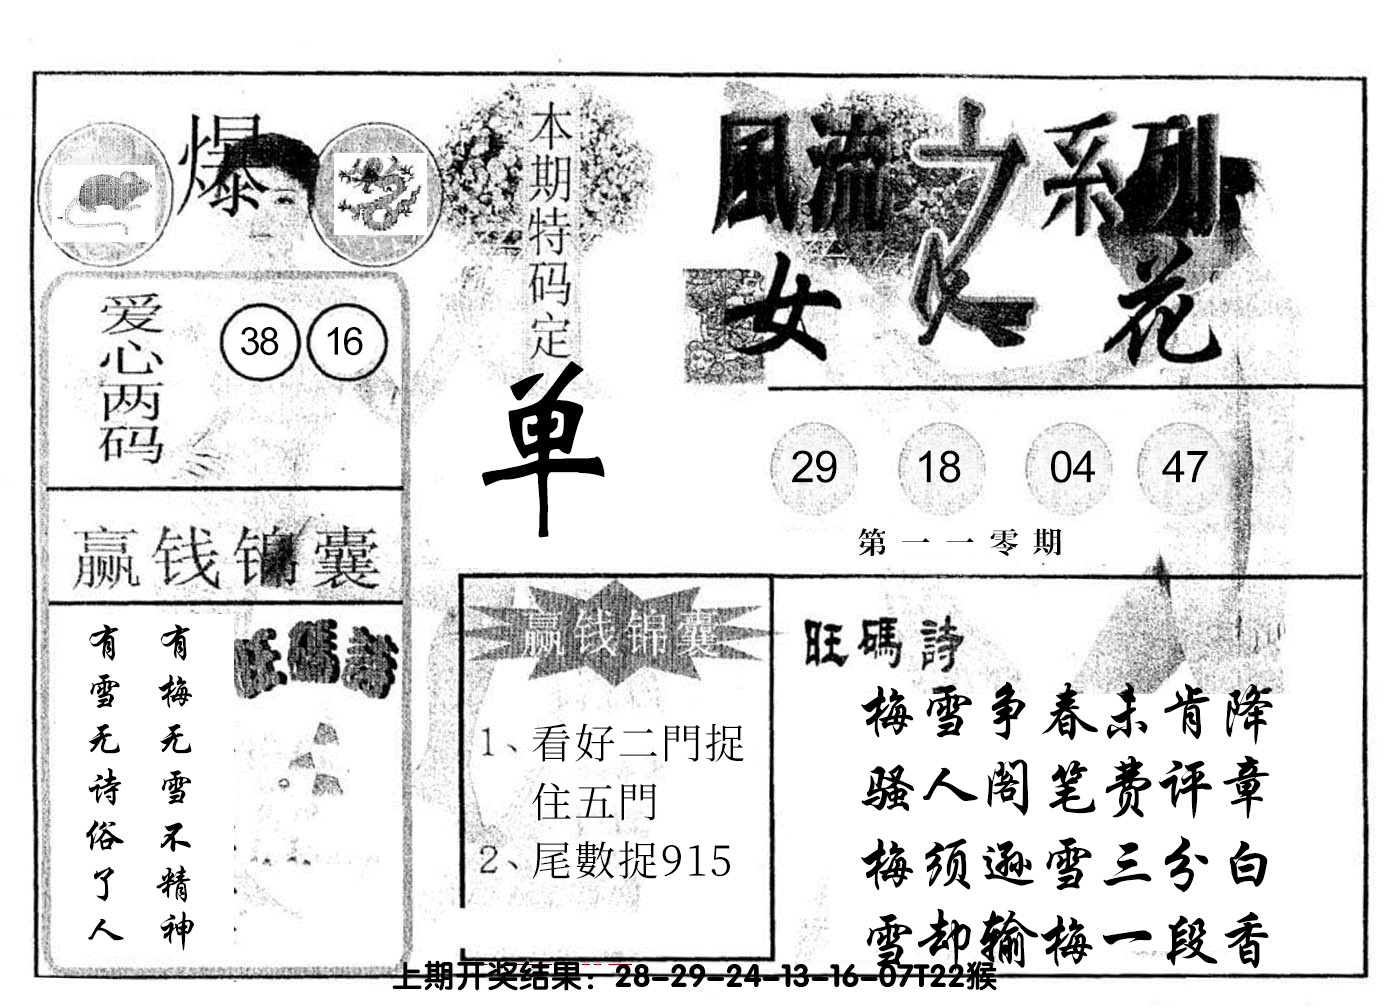 爆
本期特码定
单
風流之系列
女人花
爱心两码
38 16
29 18 04 47
第一一零期
赢钱锦囊
有梅无雪不精神
有雪无诗俗了人
旺碼詩
赢钱锦囊
1、看好二門捉
住五門
2、尾數捉915
旺碼詩
梅雪争春未肯降
骚人阁笔费评章
梅须逊雪三分白
雪却输梅一段香
上期开奖结果：28-29-24-13-16-07T22猴